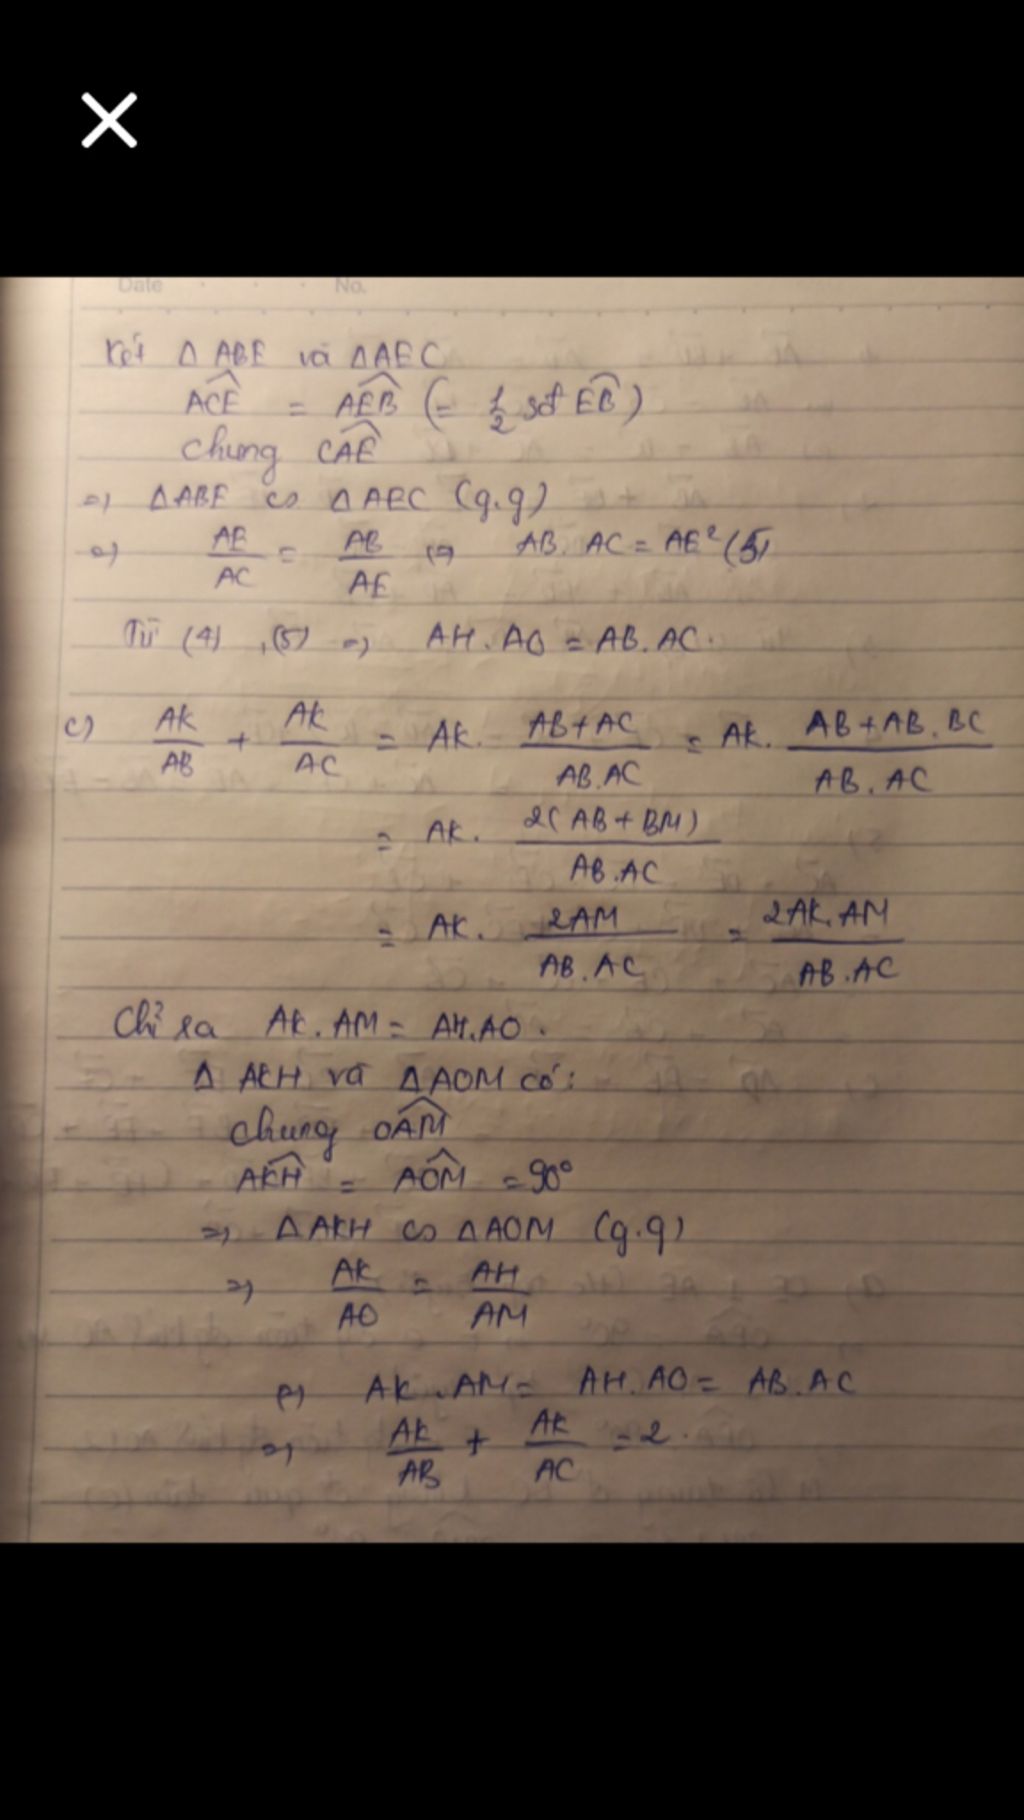 Date No.
Xét Δ ABE và ΔAEC
ACE^ = AEB^ (= 1/2 sđ EB^)
Chung CAE^
=> ΔABE ∽ ΔAEC (g.g)
=> AE/AC = AB/AE <=> AB. AC = AE² (5)
Từ (4) , (5) => AH. AO = AB. AC.
c) AK/AB + AK/AC = AK. (AB+AC)/(AB.AC) = AK. (AB+AB.BC)/(AB.AC)
= AK. 2(AB+BM)/(AB.AC)
= AK. 2AM/(AB.AC) = 2AK.AM/(AB.AC)
Chỉ ra AK.AM = AH.AO.
Δ AKH và ΔAOM có:
Chung OAM^
AKH^ = AOM^ = 90°
=> ΔAKH ∽ ΔAOM (g.g)
=> AK/AO = AH/AM
<=> AK.AM = AH.AO = AB.AC
=> AK/AB + AK/AC = 2.